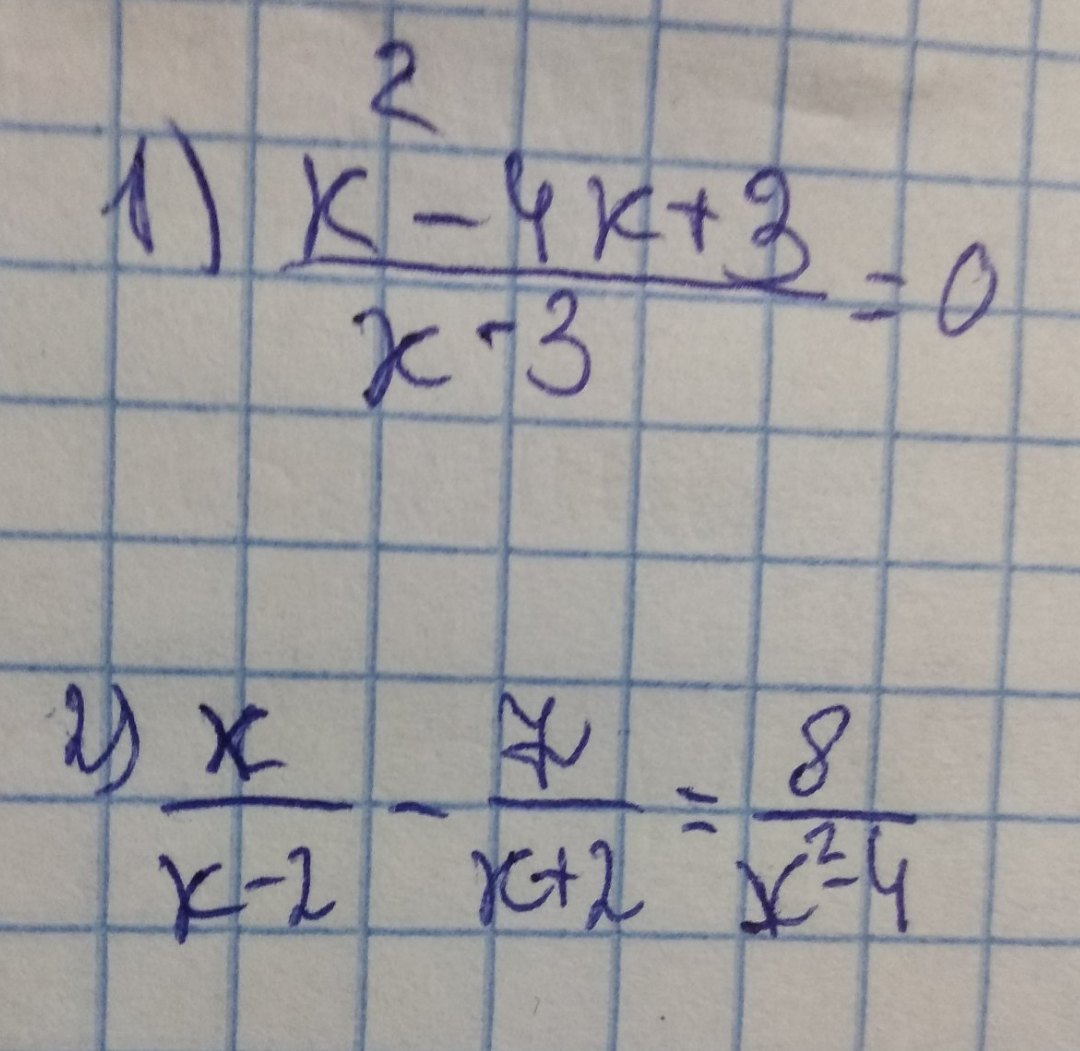 1) (x² - 4x + 3) / (x - 3) = 0
2) x / (x - 2) - 7 / (x + 2) = 8 / (x² - 4)